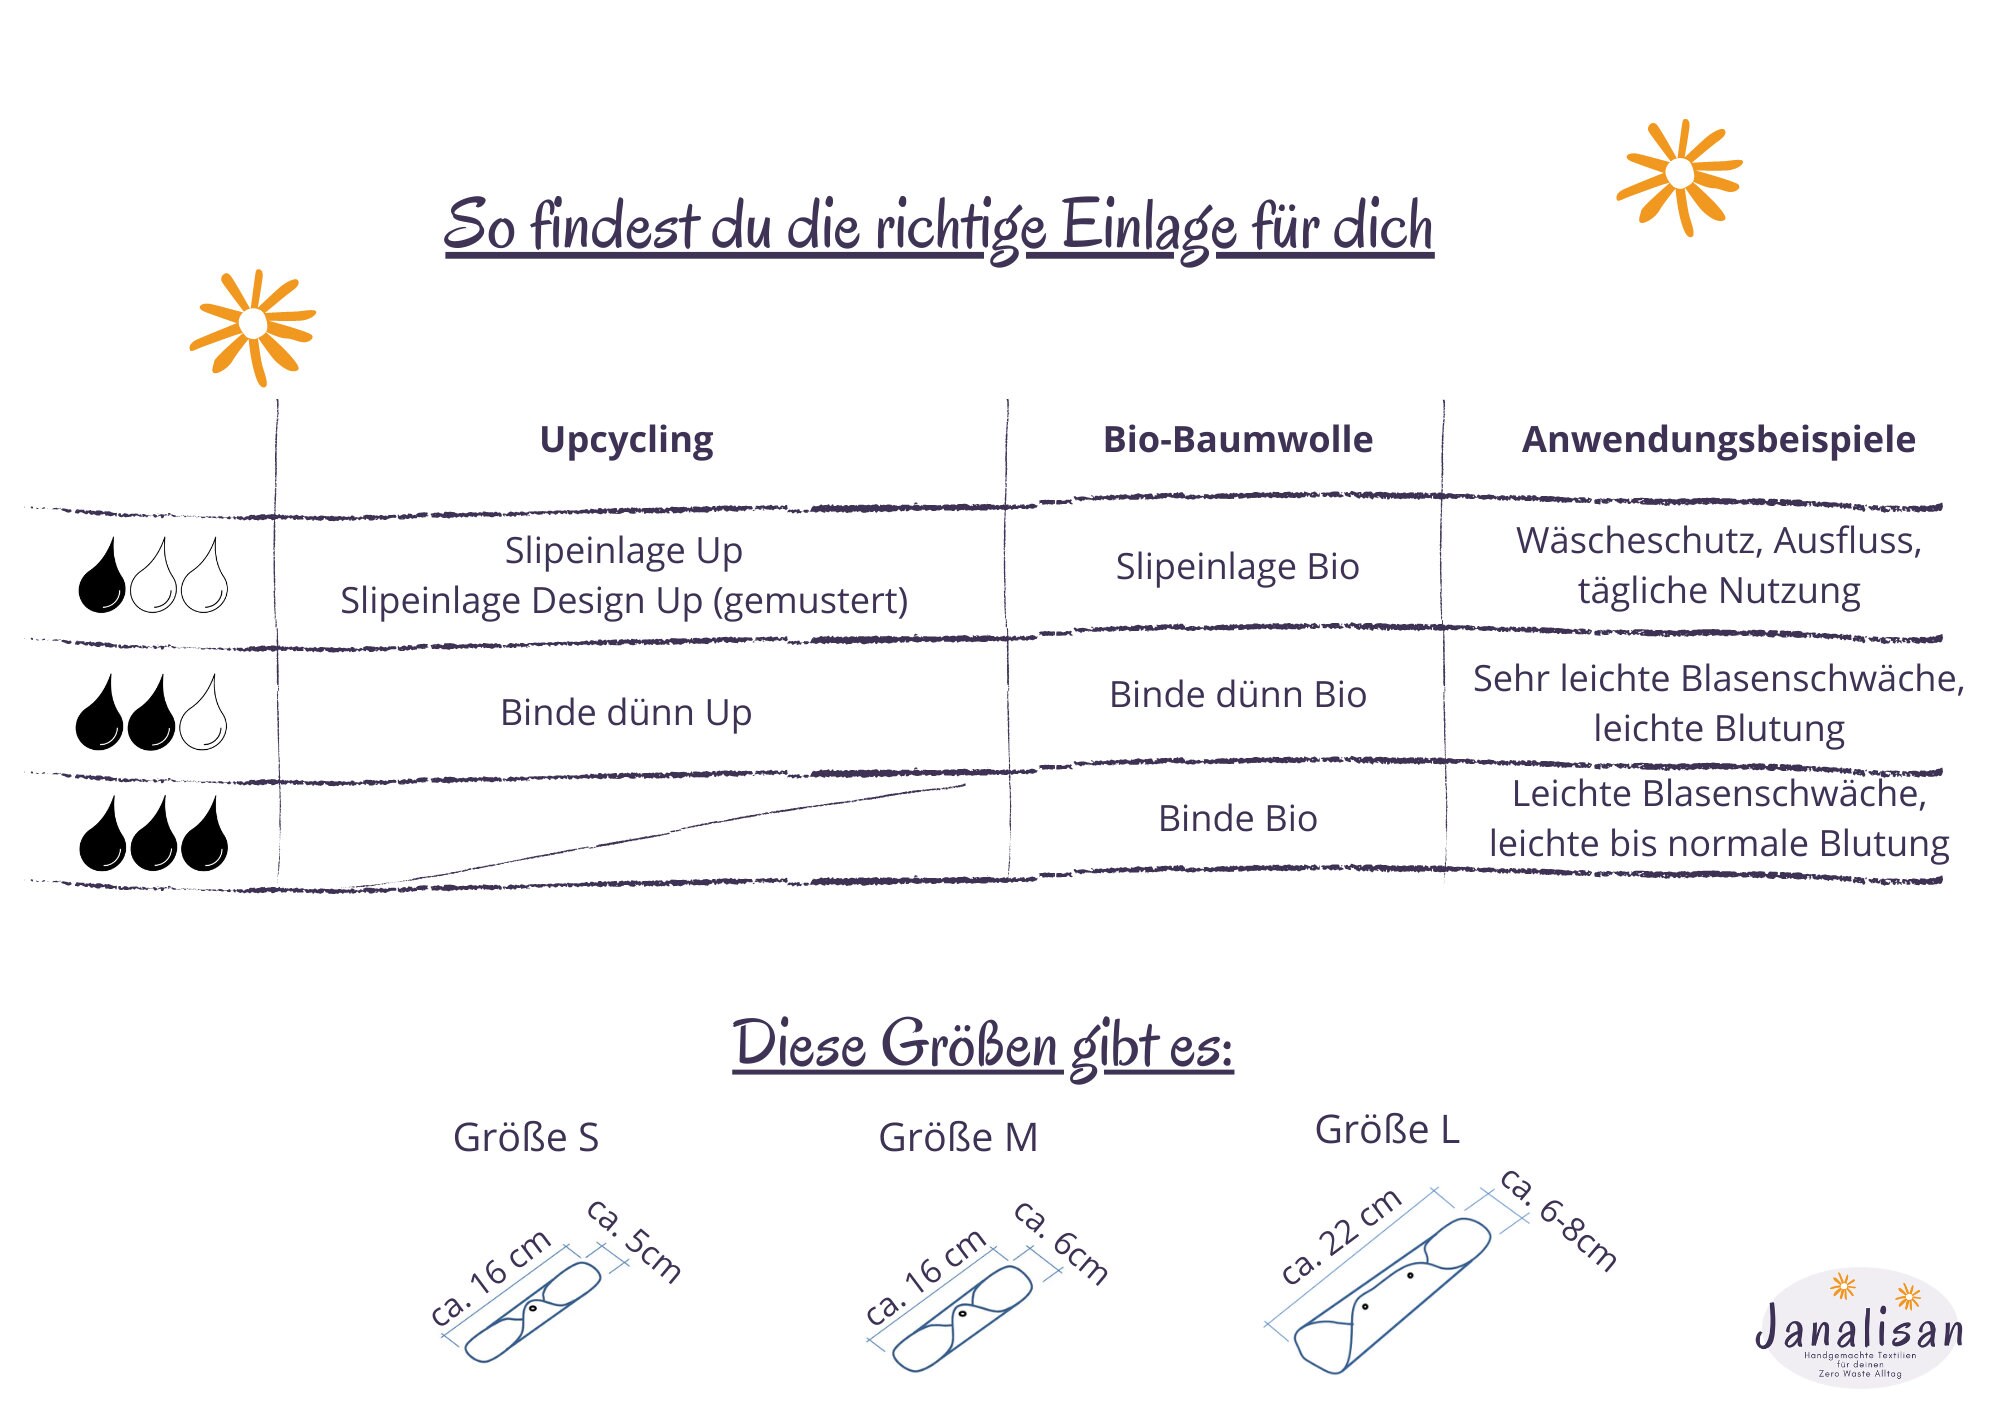 So findest du die richtige Einlage für dich
Upcycling
Bio-Baumwolle
Anwendungsbeispiele
Slipeinlage Up
Slipeinlage Design Up (gemustert)
Slipeinlage Bio
Wäscheschutz, Ausfluss,
tägliche Nutzung
Binde dünn Up
Binde dünn Bio
Sehr leichte Blasenschwäche,
leichte Blutung
Binde Bio
Leichte Blasenschwäche,
leichte bis normale Blutung
Diese Größen gibt es:
Größe S
Größe M
Größe L
ca. 16 cm
ca. 5cm
ca. 16 cm
ca. 6cm
ca. 22 cm
ca. 6-8cm
Janalisan
Handgemachte Textilien
für deinen
Zero Waste Alltag